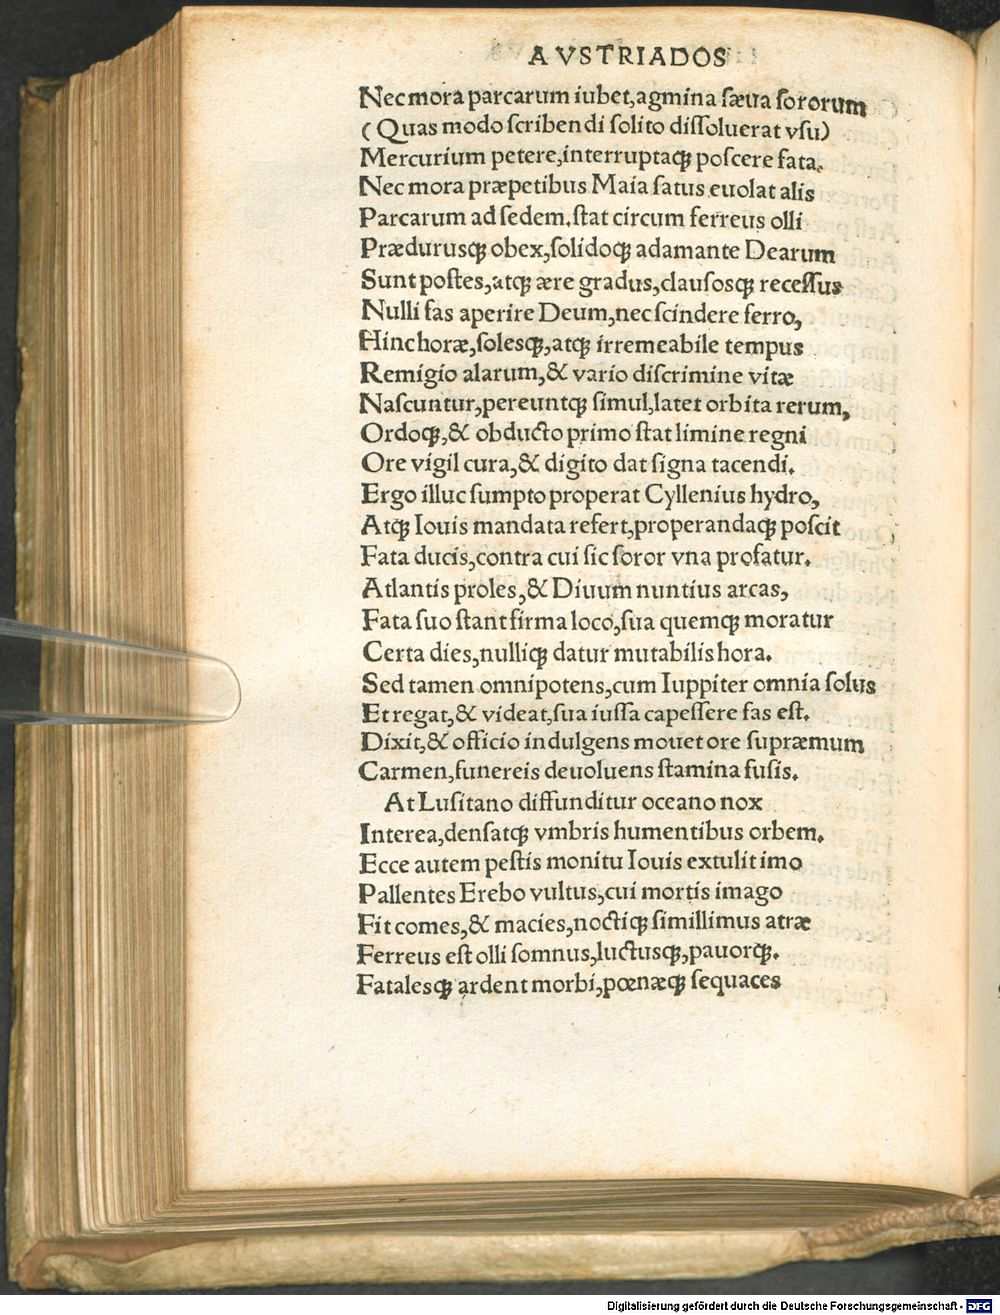 AVSTRIADOS
Nec mora parcarum iubet, agmina sæua sororum
(Quas modo scribendi solito dissoluerat vsu)
Mercurium petere, interruptaqꝫ poscere fata.
Nec mora præpetibus Maia satus euolat alis
Parcarum ad sedem. stat circum ferreus olli
Prædurusqꝫ obex, solidoqꝫ adamante Dearum
Sunt postes, atqꝫ ære gradus, clausosqꝫ recessus
Nulli fas aperire Deum, nec scindere ferro,
Hinc horæ, solesqꝫ, atqꝫ irremeabile tempus
Remigio alarum, & vario discrimine vitæ
Nascuntur, pereuntqꝫ simul, latet orbita rerum,
Ordoqꝫ, & obducto primo stat limine regni
Ore vigil cura, & digito dat signa tacendi.
Ergo illuc sumpto properat Cyllenius hydro,
Atqꝫ Iouis mandata refert, properandaqꝫ poscit
Fata ducis, contra cui sic soror vna profatur.
Atlantis proles, & Diuum nuntius arcas,
Fata suo stant firma loco, sua quemqꝫ moratur
Certa dies, nulliqꝫ datur mutabilis hora.
Sed tamen omnipotens, cum Iuppiter omnia solus
Et regat, & videat, sua iussa capessere fas est.
Dixit, & officio indulgens mouet ore supræmum
Carmen, funereis deuoluens stamina fusis.
At Lusitano diffunditur oceano nox
Interea, densatqꝫ vmbris humentibus orbem.
Ecce autem pestis monitu Iouis extulit imo
Pallentes Erebo vultus, cui mortis imago
Fit comes, & macies, noctiqꝫ simillimus atræ
Ferreus est olli somnus, luctusqꝫ, pauorqꝫ.
Fatalesqꝫ ardent morbi, pœnæqꝫ sequaces
Digitalisierung gefördert durch die Deutsche Forschungsgemeinschaft - DFG